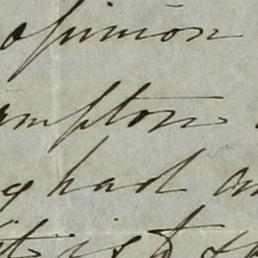 opinion
mpton
y had an
it is